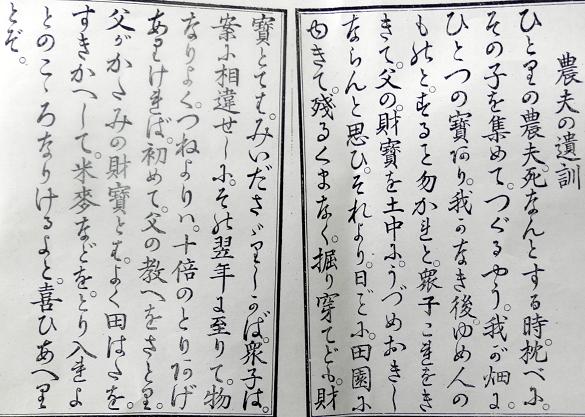 農夫の遺訓
ひとりの農夫死なんとする時。枕べに。
その子を集めて。つぐるやう。我が畑に
ひとつの寶あり。我がなき後。ゆめ人の
ものと。することを勿かれと。衆子これをき
きて。父の財寶を土中にうづめおきし
ならんと思ひ。それより。日ごに。田園に
ゆきて。殘るくまなく。掘り穿てども。財
寶とても。みいださゞりしかば。衆子は。
案に相違せしに。その翌年に至りて。物
なりよく。つねよりハ。十倍のとりあげ
ありければ。初めて。父の教へをさとり。
父がかたみの財寶とも。よく田はたを。
すきかへして。米麥などを。とり入れよ
とのこゝろなりけるよと。喜ひあへり
とぞ。